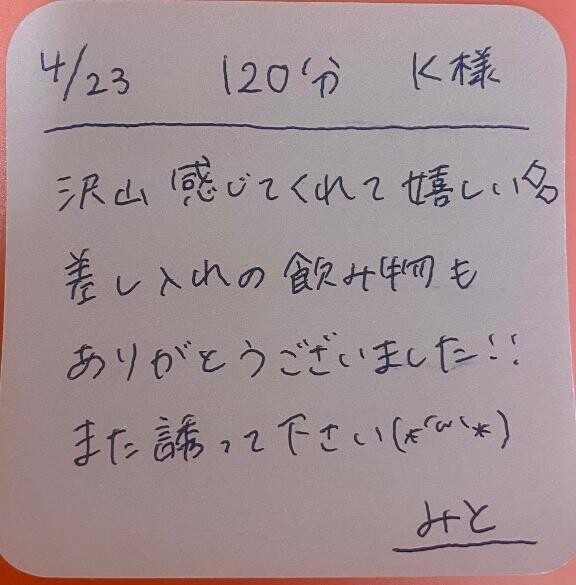 4/23 120分 K様
沢山 感じてくれて 嬉しい
差し入れの 飲み物も
ありがとうございました!!
また 誘って 下さい(*´ω`*)
みと